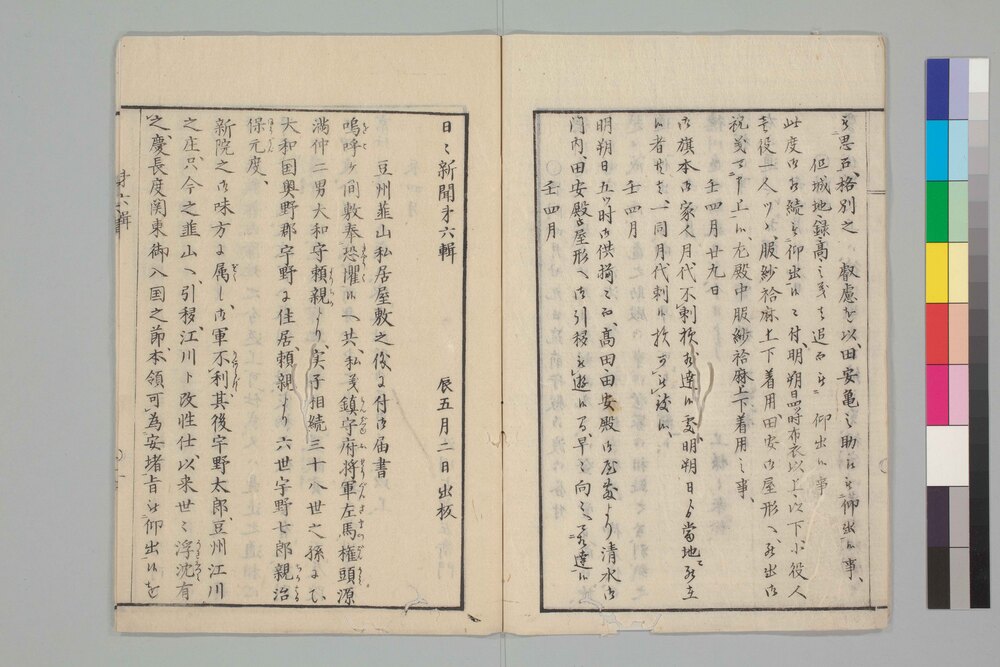 思召、格別之 叡慮を以、田安亀之助に被 仰出候事、
但城地録高之義は追而被 仰出候事
此度御相続被 仰出候に付、明朔日四時布衣以上之以下御役人
壱役壱人ツヽ服紗袷麻上下着用、田安御屋形へ罷出御
祝義可申上候、尤殿中服紗袷麻上下着用之事、
壬四月廿九日
御旗本御家人月代不剃様相達候処明朔日ゟ当地罷在
候者共は一同月代剃候様可被致候、
壬四月
明朔日五ツ時御供揃ニ而、高田田安殿御屋敷より清水御
門内、田安殿御屋形へ御引移被遊候間、早々向々へ可被達候
〇壬四月
日々新聞才六輯 辰五月二日出板
豆州韮山私居屋敷之儀に付御届書
嗚呼ヶ間敷奉恐懼候へ共、私義鎮守府将軍左馬権頭源
満仲二男大和守頼親より、実子相続三十八世之孫にて、
大和国奥野郡宇野に住居、頼親より六世宇野七郎親治
保元度、
新院之御味方に属し、御軍不利其後宇野太郎豆州江川
之庄、只今之韮山へ引移、江川ト改性仕、以来世々浮沈有
之、慶長度関東御入国之節本領可為安堵旨被仰出候を
才六輯